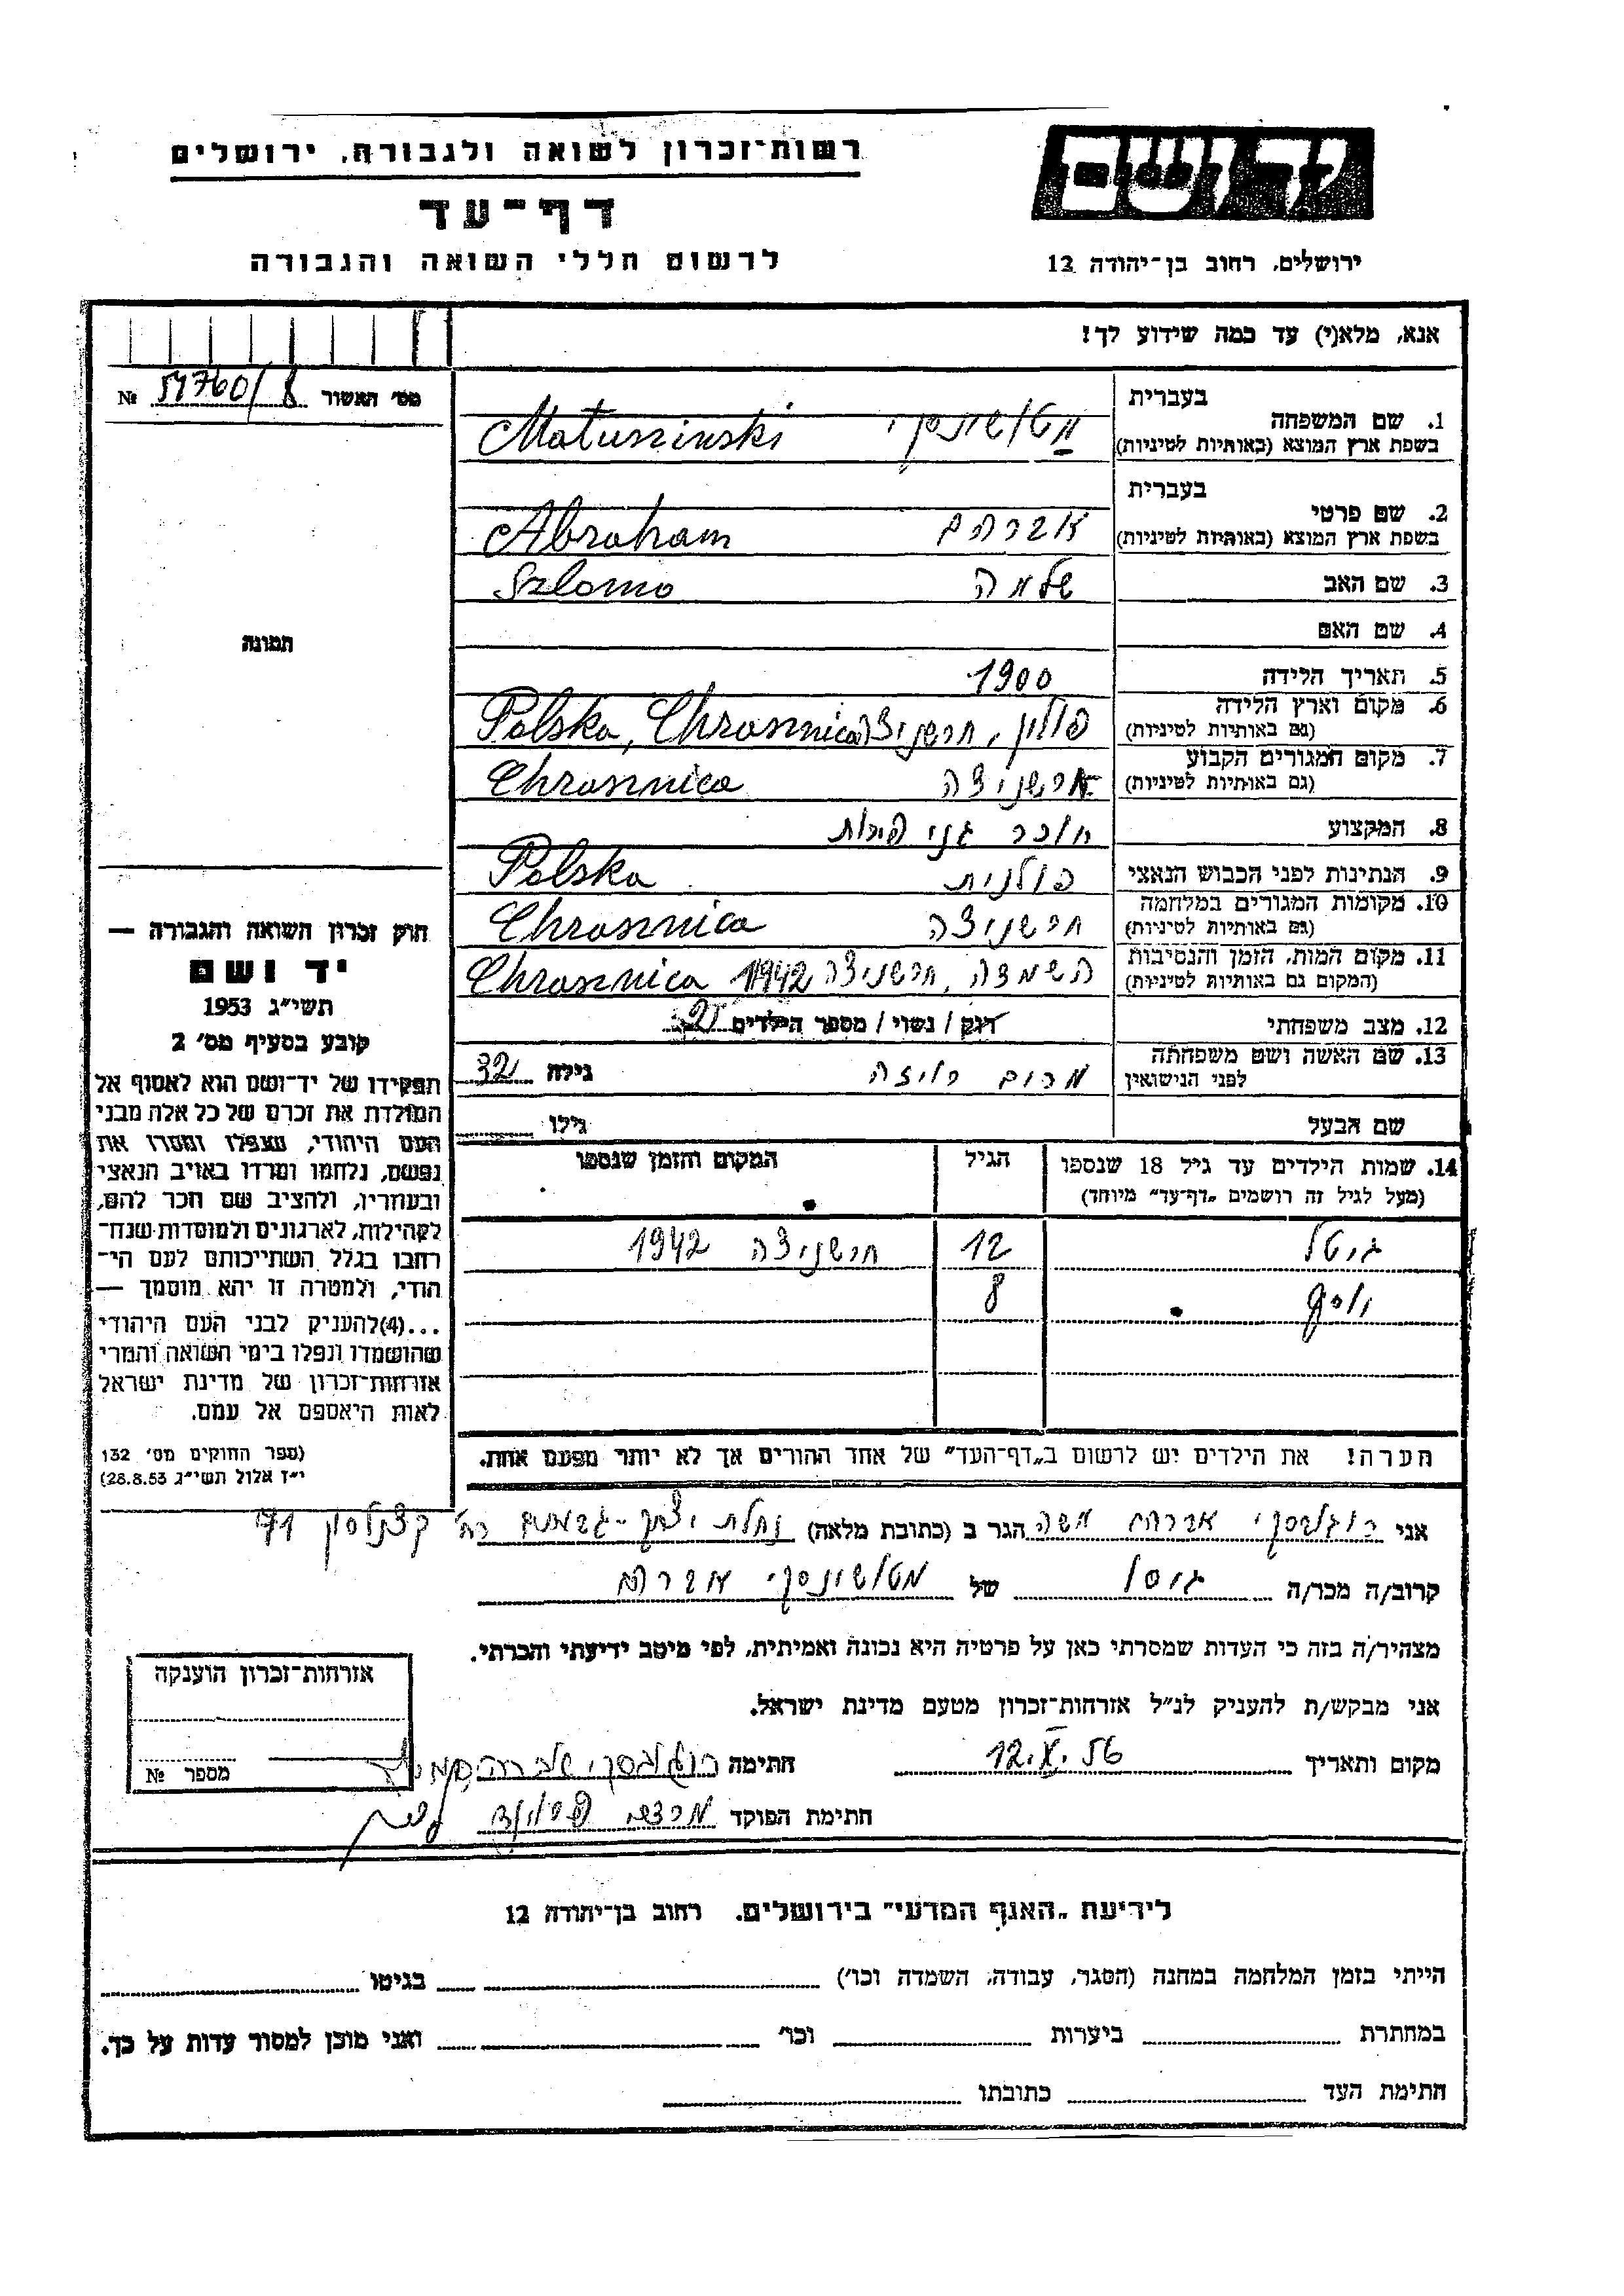 רשות־זכרון לשואה ולגבורה, ירושלים
דף־עד
לרשום חללי השואה והגבורה
יד ושם
ירושלים, רחוב בן־יהודה 12
אנא, מלא(י) עד כמה שידוע לך!
מס' האשור № 54760/8
1. שם המשפחה
בעברית
בשפת ארץ המוצא (באותיות לטיניות)
מטושינסקי Matuszinski
2. שם פרטי
בעברית
בשפת ארץ המוצא (באותיות לטיניות)
אברהם Abraham
3. שם האב שלמה Szlomo
4. שם האם
5. תאריך הלידה 1900
6. מקום וארץ הלידה
(גם באותיות לטיניות)
פולין, חרשניצה Polska, Chrosznica
7. מקום המגורים הקבוע
(גם באותיות לטיניות)
חרשניצה Chrosznica
8. המקצוע חוכר גני פירות
9. הנתינות לפני הכבוש הנאצי פולנית Polska
10. מקומות המגורים במלחמה
(גם באותיות לטיניות)
חרשניצה Chrosznica
11. מקום המות, הזמן והנסיבות
(המקום גם באותיות לטיניות)
השמדה, חרשניצה 1942 Chrosznica
12. מצב משפחתי רוק / נשוי / מספר הילדים 2
13. שם האשה ושם משפחתה
לפני הנישואין
רייזה גילה 32
שם הבעל גילו
14. שמות הילדים עד גיל 18 שנספו
(מעל לגיל זה רושמים „דף־עד" מיוחד)
הגיל
המקום והזמן שנספו
גיטל 12 חרשניצה 1942
יוסף 8
הערה! את הילדים יש לרשום ב„דף־העד" של אחד ההורים אך לא יותר מפעם אחת.
תמונה
חוק זכרון השואה והגבורה —
יד ושם
תשי"ג 1953
קובע בסעיף מס' 2
תפקידו של יד־ושם הוא לאסוף אל
המולדת את זכרם של כל אלה מבני
העם היהודי, שנפלו ומסרו את
נפשם, נלחמו ומרדו באויב הנאצי
ובעוזריו, ולהציב שם וזכר להם,
לקהילות, לארגונים ולמוסדות שנח־
רבו בגלל השתייכותם לעם הי־
הודי, ולמטרה זו יהא מוסמך —
...(4) להעניק לבני העם היהודי
שהושמדו ונפלו בימי השואה והמרי
אזרחות־זכרון של מדינת ישראל
לאות היאספם אל עמם.
(ספר החוקים מס' 132
י"ז אלול תשי"ג 28.8.53)
אני אברהם משה הגר ב (כתובת מלאה) נחלת יצחק - גבעתיים רח' קצנלסון 71
קרוב/ה מכר/ה גיסו של מטושינסקי אברהם
מצהיר/ה בזה כי העדות שמסרתי כאן על פרטיה היא נכונה ואמיתית, לפי מיטב ידיעתי והכרתי.
אני מבקש/ת להעניק לנ"ל אזרחות־זכרון מטעם מדינת ישראל.
מקום ותאריך 12.X.56 חתימה
חתימת הפוקד
אזרחות־זכרון הוענקה
מספר №
לידיעת „האגף המדעי" בירושלים. רחוב בן־יהודה 12
הייתי בזמן המלחמה במחנה (הסגר, עבודה, השמדה וכו') בגיטו
במחתרת ביערות וכו' ואני מוכן למסור עדות על כך.
חתימת העד כתובתו